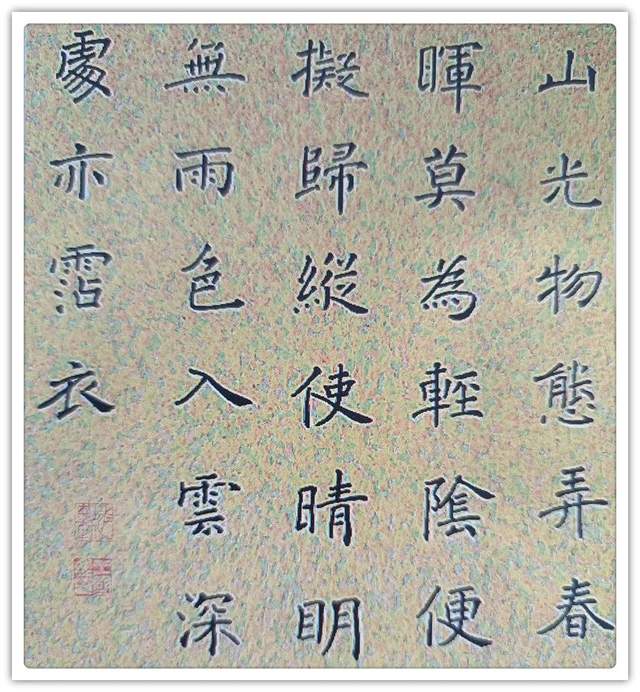 山光物態弄春
暉莫為輕陰便
擬歸縱使晴明
無雨色入雲深
處亦霑衣